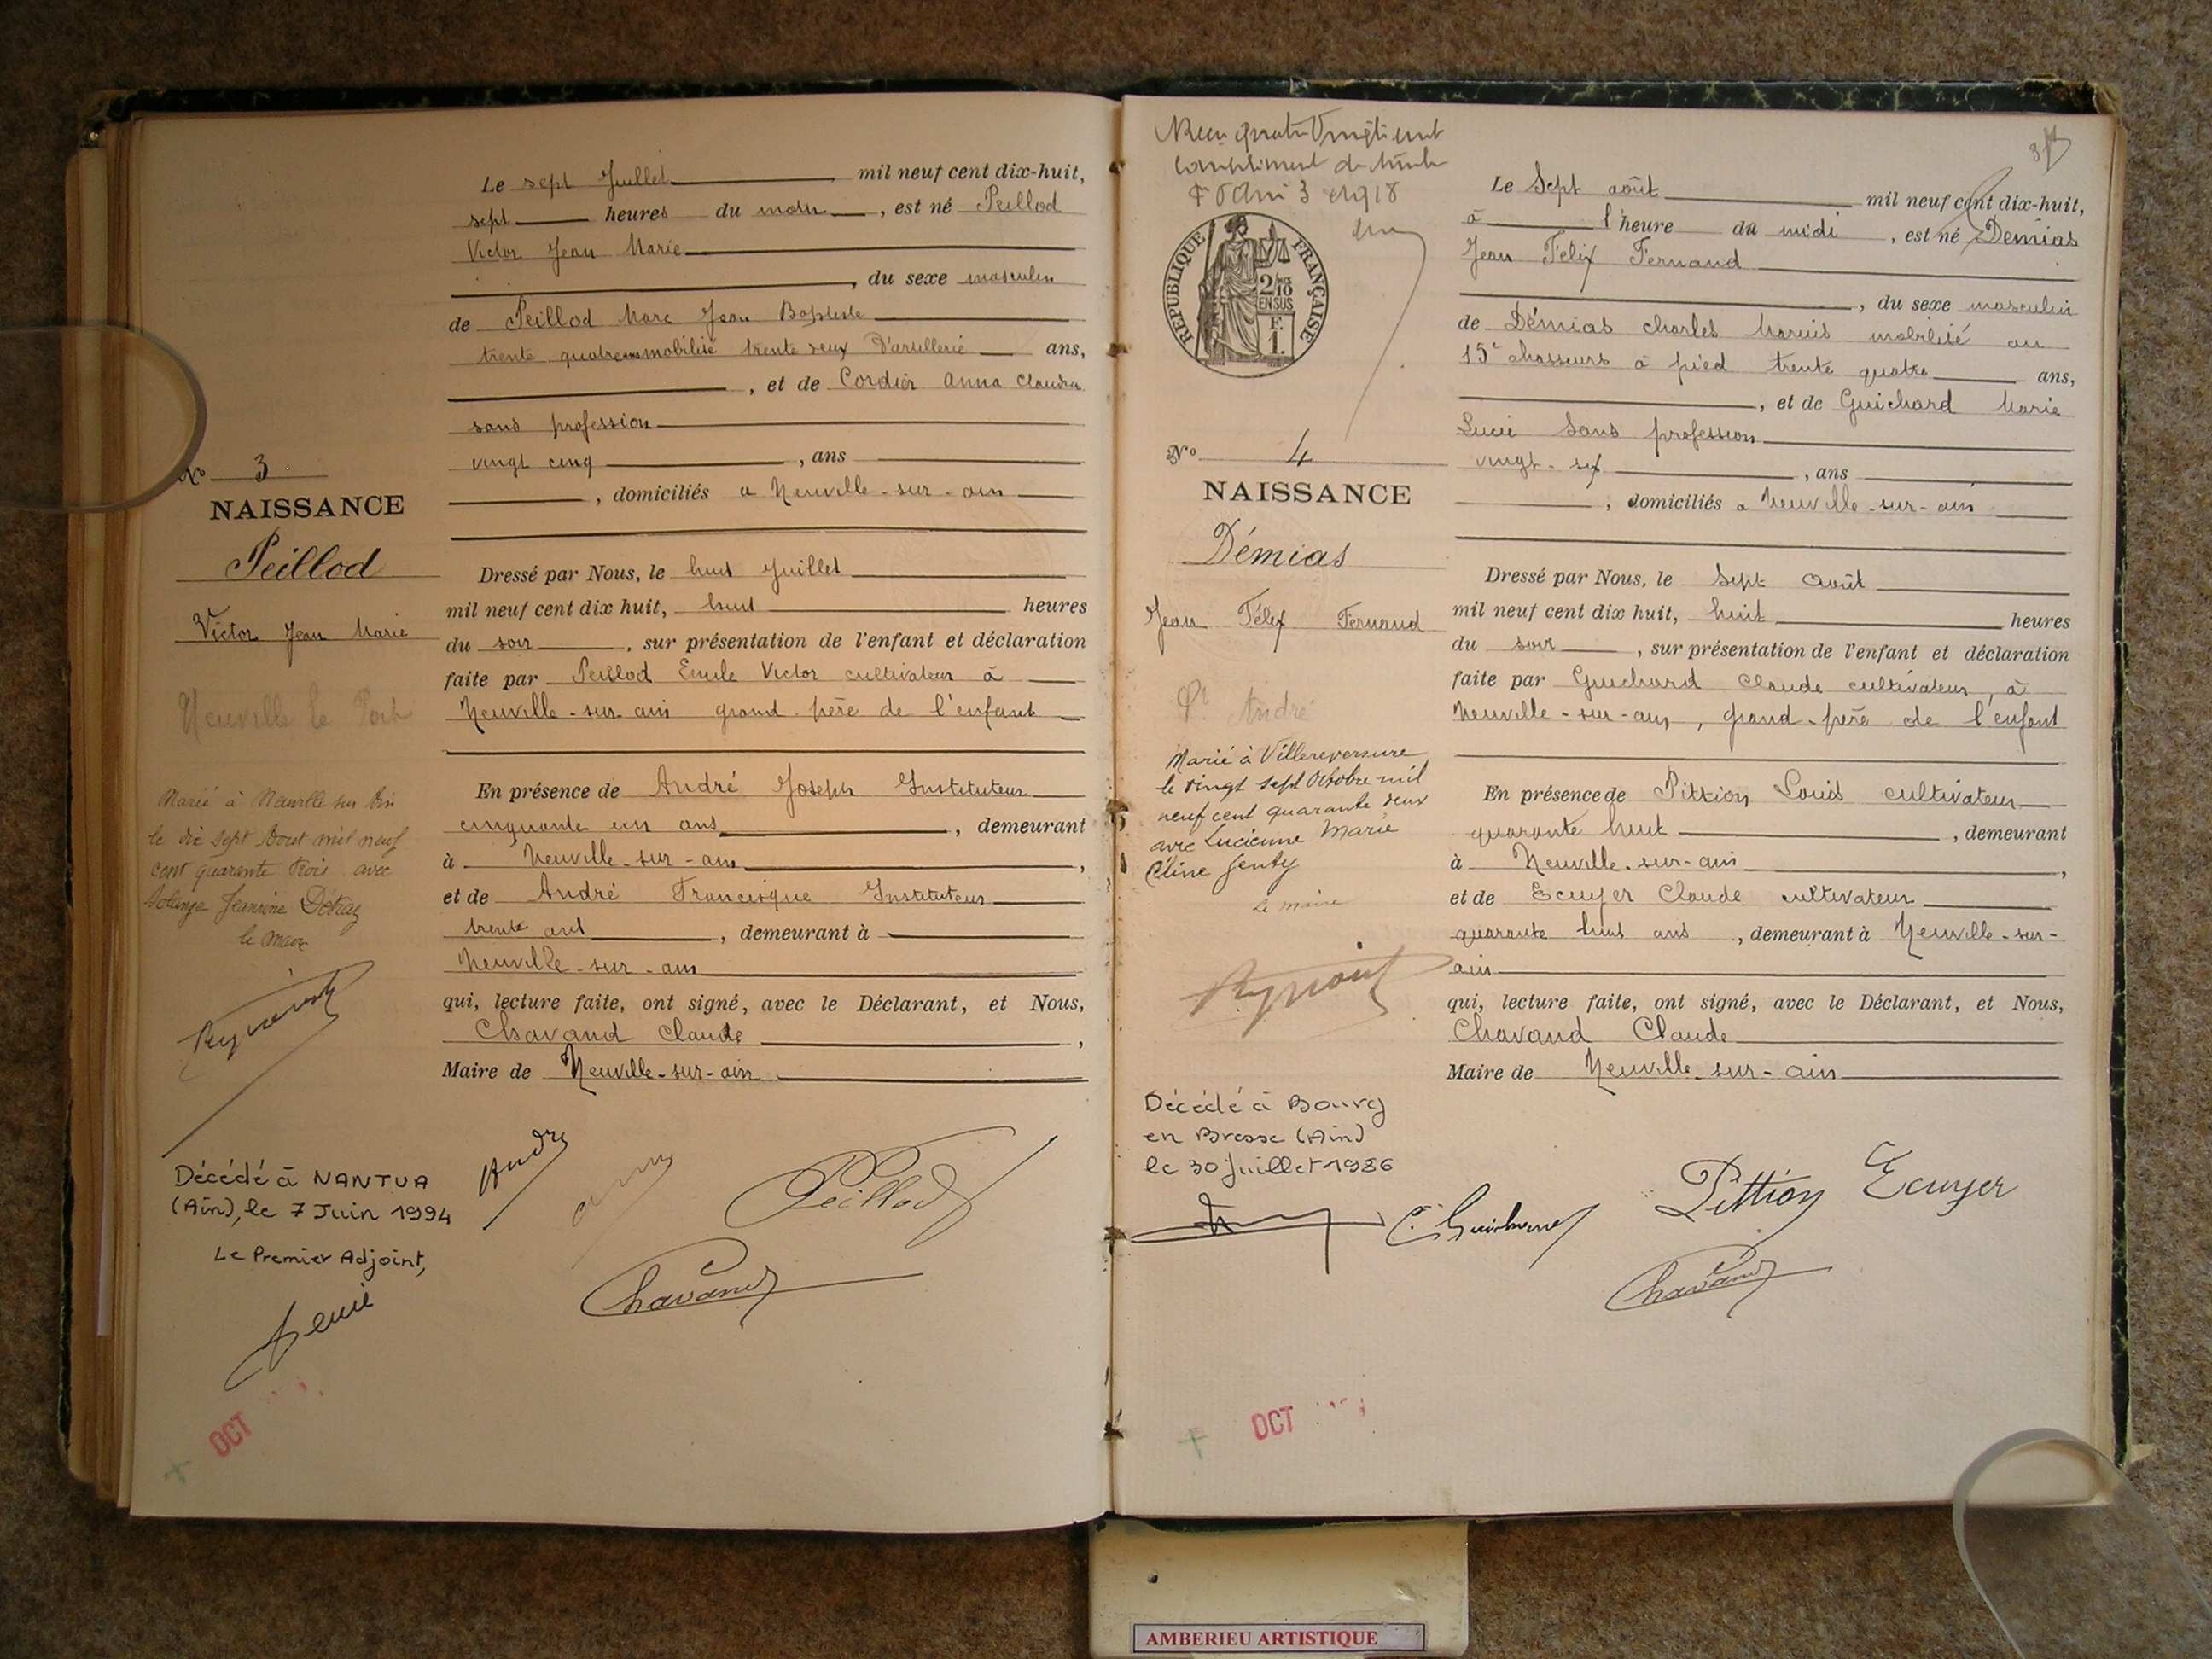 Le sept Juillet mil neuf cent dix-huit,
sept heures du matin, est né Peillod
Victor Jean Marie
, du sexe masculin
de Peillod Marc Jean Baptiste
trente quatre ans mobilisé trente deux D'artillerie ans,
, et de Cordier Anna Claudia
sans profession
vingt cinq , ans
, domiciliés a Neuville-sur-ain
No 3
NAISSANCE
Peillod
Victor Jean Marie
Neuville le Pont
Marié à Neuville sur Ain
le dix sept Aout mil neuf
cent quarante trois avec
Solange Jeannine
le Maire
Décédé à NANTUA
(Ain), le 7 Juin 1994
Le Premier Adjoint,
OCT
Dressé par Nous, le huit Juillet
mil neuf cent dix huit, huit heures
du soir , sur présentation de l'enfant et déclaration
faite par Peillod Emile Victor cultivateur à
Neuville-sur-ain grand-père de l'enfant
En présence de André Joseph Instituteur
cinquante un ans , demeurant
à Neuville-sur-ain ,
et de André Francisque Instituteur
trente ans , demeurant à
Neuville-sur-ain
qui, lecture faite, ont signé, avec le Déclarant, et Nous,
Chavand Claude ,
Maire de Neuville-sur-ain
André
Peillod
Chavand
REPUBLIQUE FRANÇAISE
2/10
EN SUS
F.
1.
Le Sept août mil neuf cent dix-huit,
à 1 heure du midi , est né Demias
Jean Félix Fernand
, du sexe masculin
de Démias Charles Marius mobilisé au
15e chasseurs à pied trente quatre ans,
, et de Guichard Marie
Lucie Sans profession
vingt-six , ans
, domiciliés a Neuville-sur-ain
No 4
NAISSANCE
Démias
Jean Félix Fernand
St André
Marié à Villereversure
le vingt sept Octobre mil
neuf cent quarante deux
avec Lucienne Marie
Céline Genty
Le maire
Décédé à Bourg
en Bresse (Ain)
le 30 Juillet 1986
OCT
Dressé par Nous, le Sept Août
mil neuf cent dix huit, huit heures
du soir , sur présentation de l'enfant et déclaration
faite par Guichard Claude cultivateur, à
Neuville-sur-ain, grand-père de l'enfant
En présence de Pittion Louis cultivateur
quarante huit , demeurant
à Neuville-sur-ain ,
et de Ecuyer Claude cultivateur
quarante huit ans , demeurant à Neuville-sur-
ain
qui, lecture faite, ont signé, avec le Déclarant, et Nous,
Chavand Claude
Maire de Neuville-sur-ain
Pittion Ecuyer
Chavand
AMBERIEU ARTISTIQUE